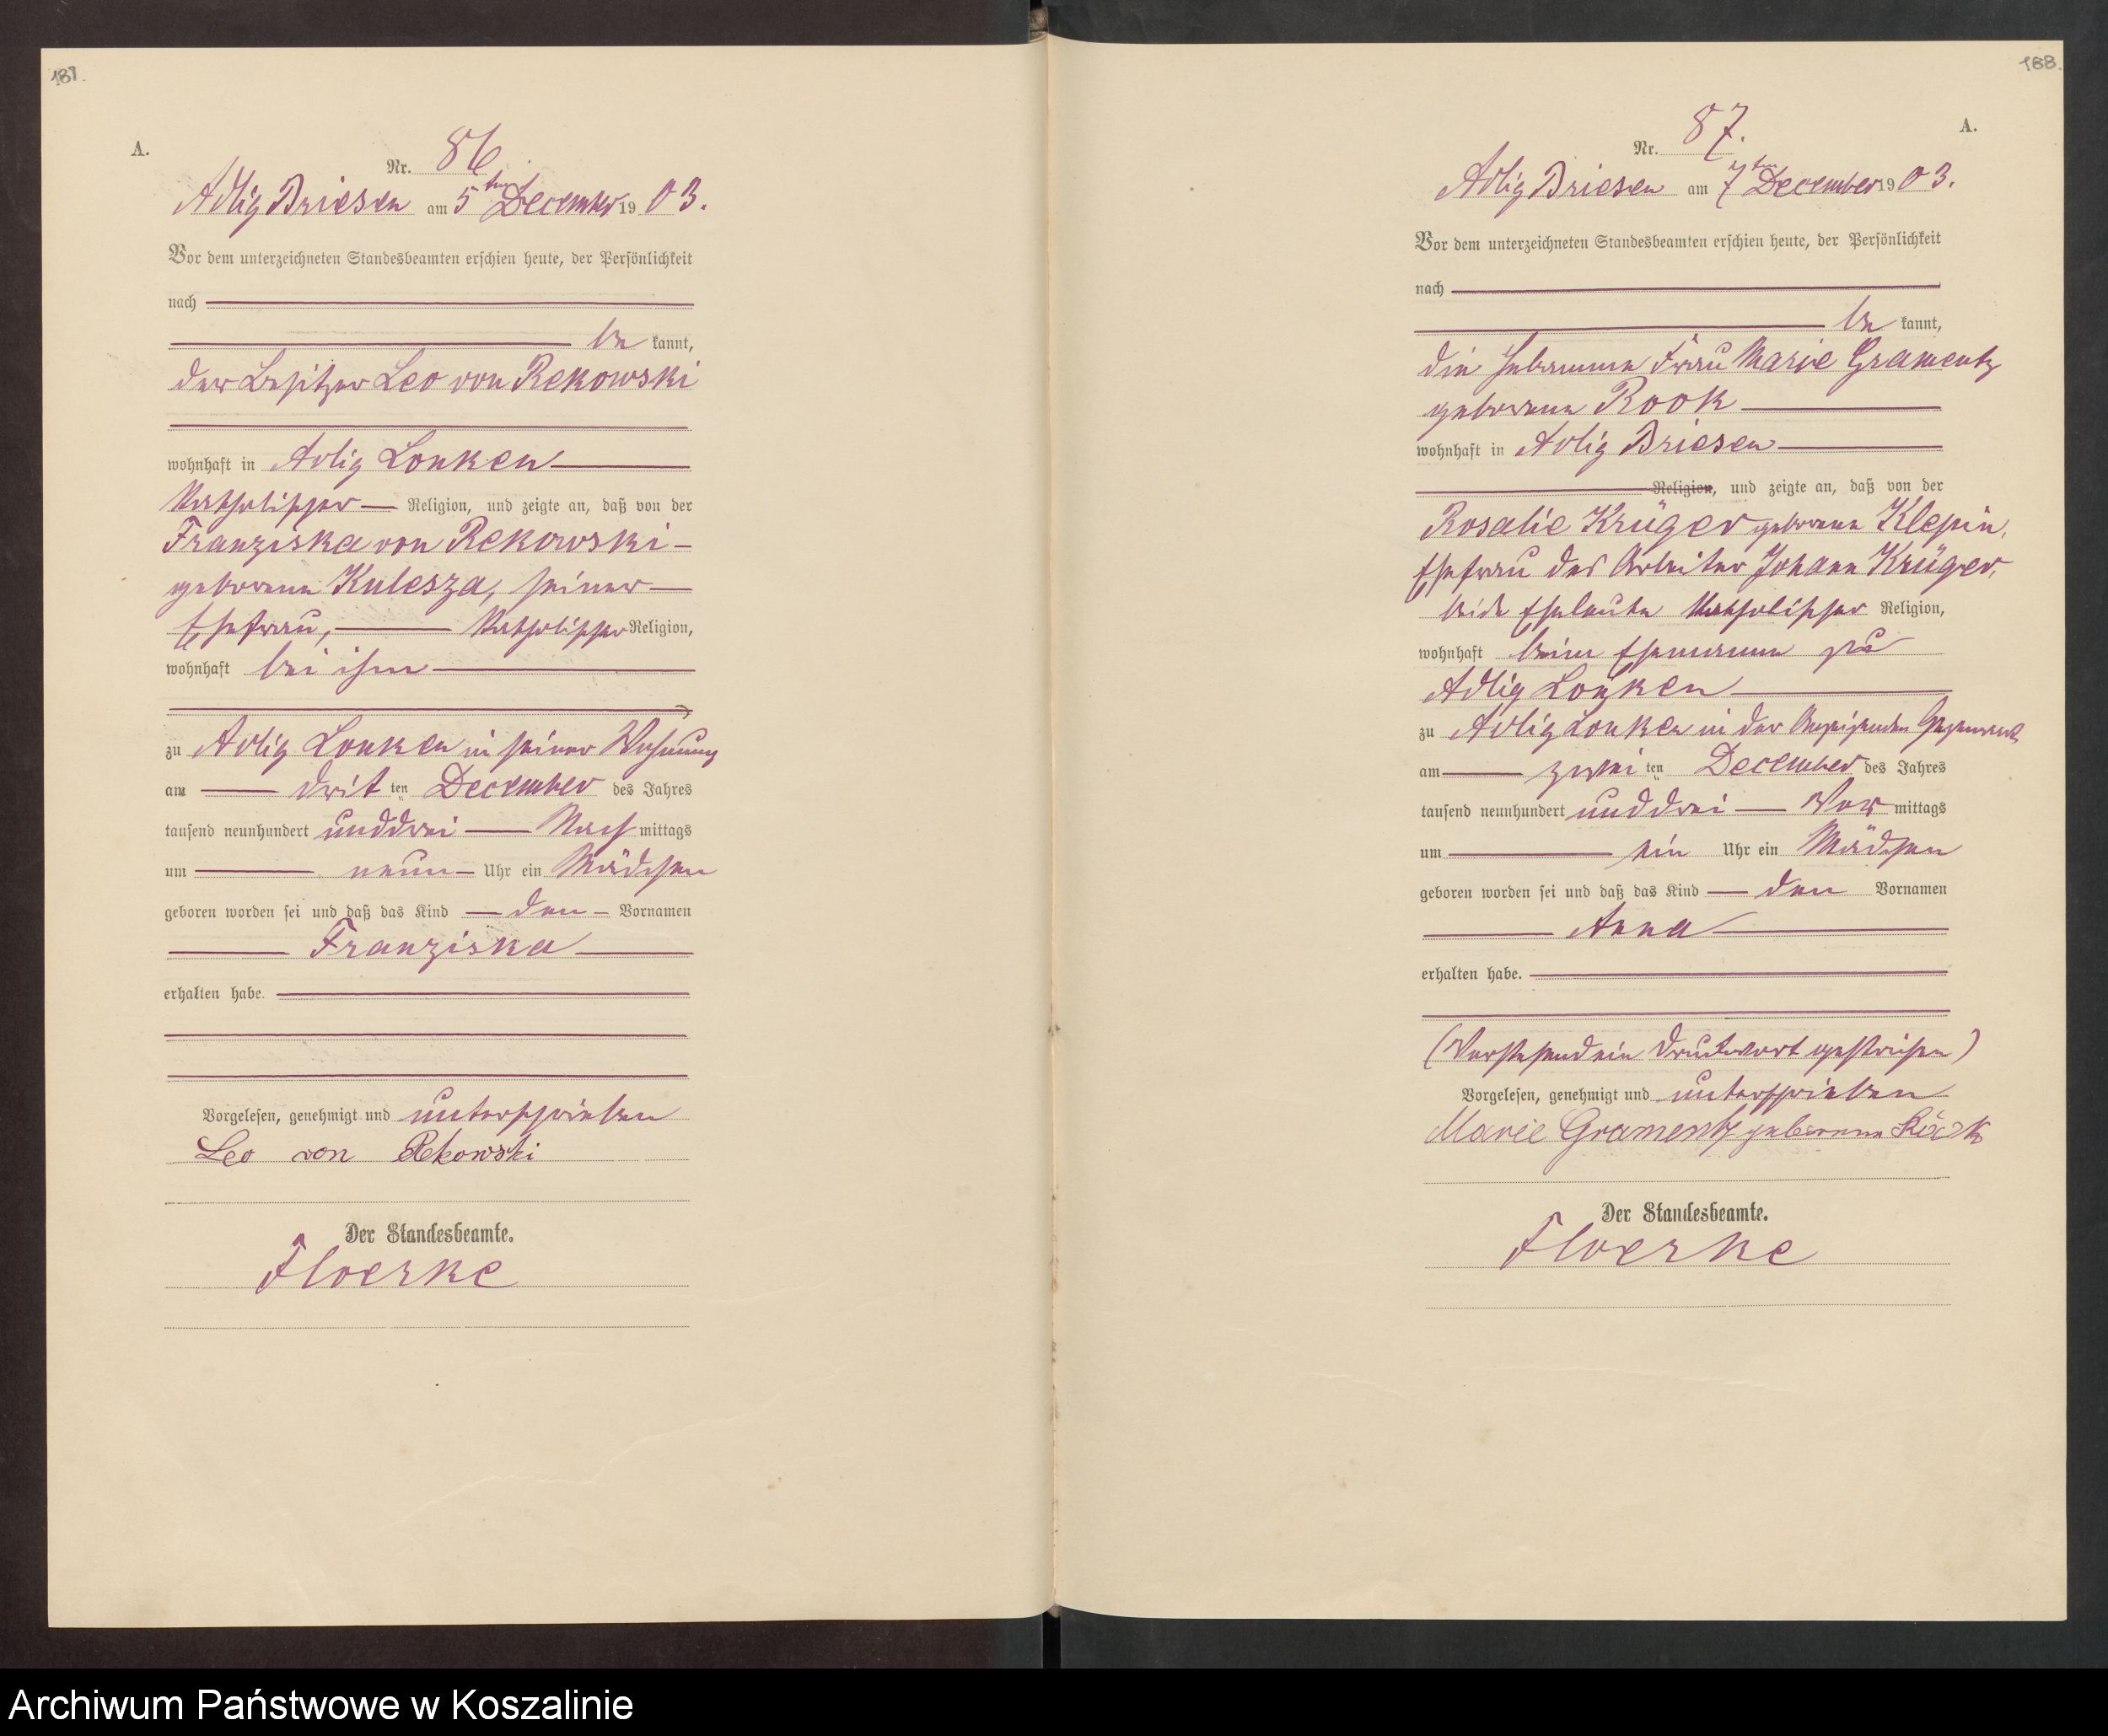 187.
A.
Nr. 86
Adlig Briesen am 5ten December 1903.
Vor dem unterzeichneten Standesbeamten erschien heute, der Persönlichkeit
nach
be kannt,
der Besitzer Leo von Rekowski
wohnhaft in Adlig Lonken
katholischer Religion, und zeigte an, daß von der
Franziska von Rekowski
geborene Kulesza, seiner
Ehefrau, katholischer Religion,
wohnhaft bei ihm
zu Adlig Lonken in seiner Wohnung
am drit ten December des Jahres
tausend neunhundert unddrei Nach mittags
um neun Uhr ein Mädchen
geboren worden sei und daß das Kind den Vornamen
Franziska
erhalten habe.
Vorgelesen, genehmigt und unterschrieben
Leo von Rekowski
Der Standesbeamte.
Floerke
188.
A.
Nr. 87.
Adlig Briesen am 7ten December 1903.
Vor dem unterzeichneten Standesbeamten erschien heute, der Persönlichkeit
nach
be kannt,
die Hebamme Frau Marie Gramentz
geborene Rook
wohnhaft in Adlig Briesen
Religion, und zeigte an, daß von der
Rosalie Krüger geborene Klepin,
Ehefrau des Arbeiter Johann Krüger,
beide Eheleute katholischer Religion,
wohnhaft beim Ehemanne zu
Adlig Lonken
zu Adlig Lonken in der Anzeigenden Gegenwart
am zwei ten December des Jahres
tausend neunhundert unddrei Vor mittags
um ein Uhr ein Mädchen
geboren worden sei und daß das Kind den Vornamen
Anna
erhalten habe.
(Vorstehend ein Druckwort gestrichen)
Vorgelesen, genehmigt und unterschrieben
Marie Gramentz geborene
Der Standesbeamte.
Floerke
Archiwum Państwowe w Koszalinie